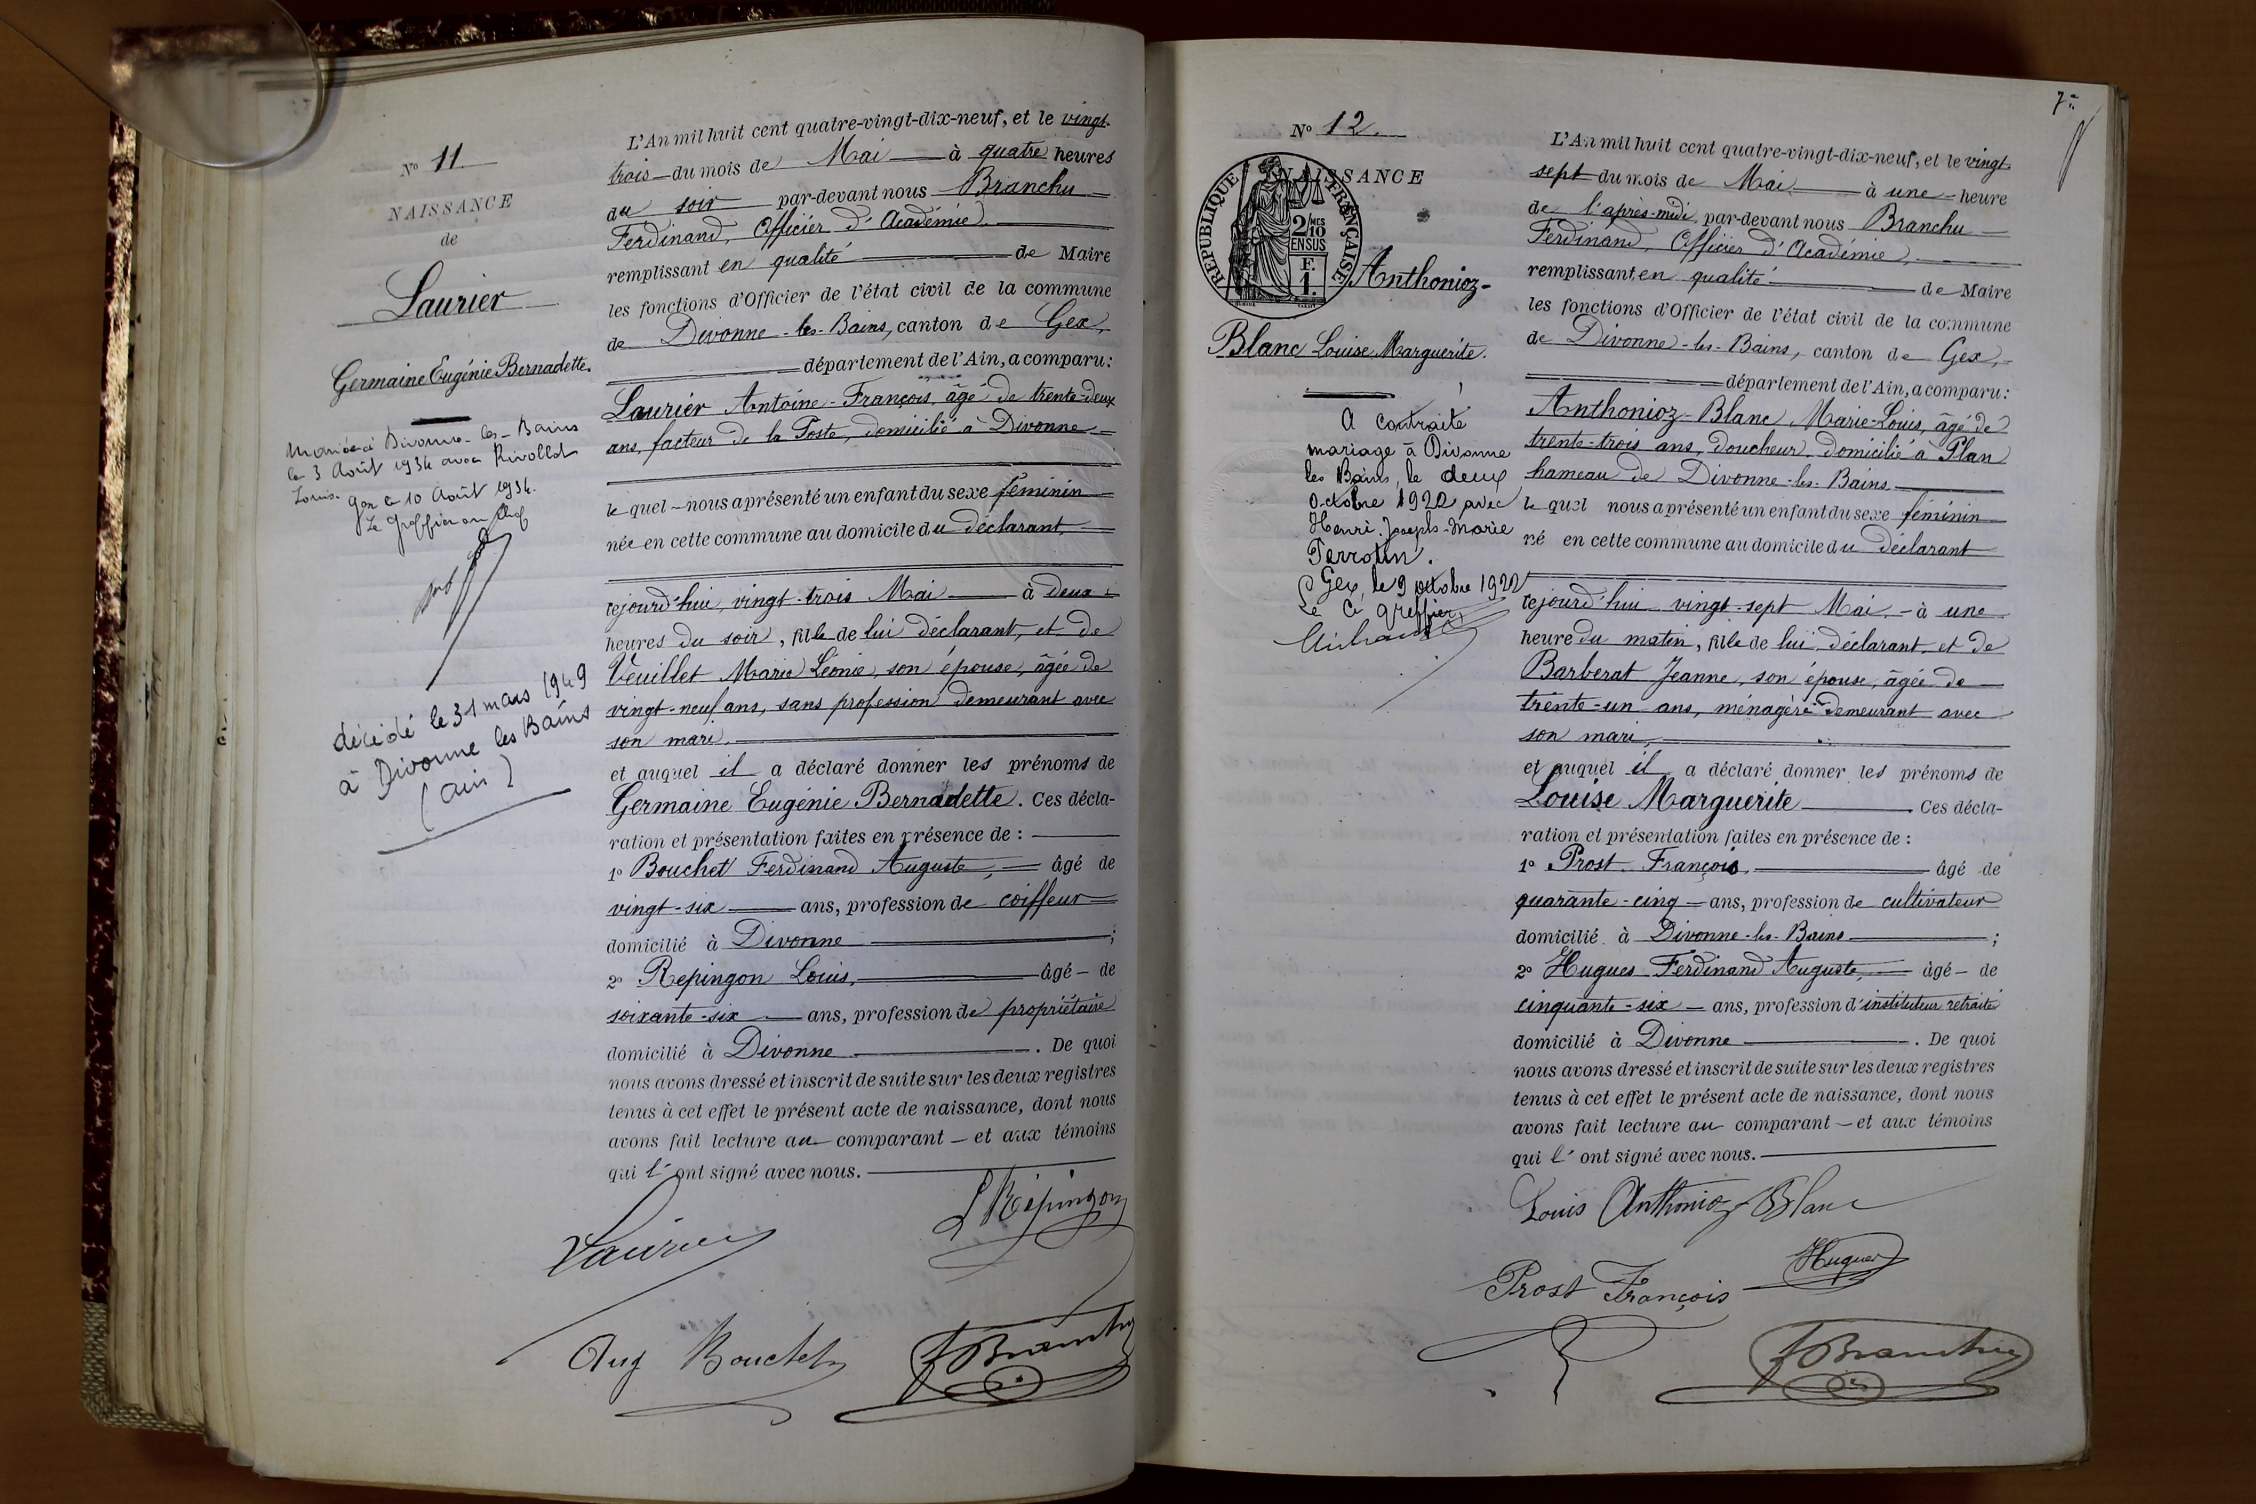 No 11
NAISSANCE
de
Laurier
Germaine Eugénie Bernadette.
Mariée à Divonne-les-Bains
le 3 Août 1934 avec Rivollet
Louis.
Gex le 10 Août 1934.
Le Greffier en Chef
décédé le 31 mars 1949
à Divonne les Bains
(Ain)
L'An mil huit cent quatre-vingt-dix-neuf, et le vingt-
trois du mois de Mai à quatre heures
du soir par-devant nous Branchu
Ferdinand, Officier d'Académie
remplissant en qualité de Maire
les fonctions d'Officier de l'état civil de la commune
de Divonne-les-Bains, canton de Gex,
département de l'Ain, a comparu:
Laurier Antoine-François, âgé de trente-deux
ans, facteur de la Poste, domicilié à Divonne
le quel nous a présenté un enfant du sexe féminin
née en cette commune au domicile du déclarant,
cejourd'hui, vingt-trois Mai à deux
heures du soir, fille de lui déclarant, et de
Veuillet Marie Léonie, son épouse, âgée de
vingt-neuf ans, sans profession demeurant avec
son mari.
et auquel il a déclaré donner les prénoms de
Germaine Eugénie Bernadette. Ces décla-
ration et présentation faites en présence de :
1o Bouchet Ferdinand Auguste, âgé de
vingt-six ans, profession de coiffeur
domicilié à Divonne ;
2o Repingon Louis, âgé de
soixante-six ans, profession de propriétaire
domicilié à Divonne . De quoi
nous avons dressé et inscrit de suite sur les deux registres
tenus à cet effet le présent acte de naissance, dont nous
avons fait lecture au comparant et aux témoins
qui l'ont signé avec nous.
Laurier
L Répingon
Aug Bouchet
F Branchu
7e
No 12.
NAISSANCE
RÉPUBLIQUE FRANÇAISE
2/10 MES
EN SUS
F.
1.
Anthonioz-
Blanc Louise Marguerite.
A contracté
mariage à Divonne
les Bains, le deux
octobre 1922 avec
Henri-Joseph-Marie
Perrotin.
Gex, le 9 octobre 1922
Le Cis greffier,
L'An mil huit cent quatre-vingt-dix-neuf, et le vingt-
sept du mois de Mai à une heure
de l'après-midi, par-devant nous Branchu
Ferdinand, Officier d'Académie,
remplissant en qualité de Maire
les fonctions d'Officier de l'état civil de la commune
de Divonne-les-Bains, canton de Gex,
département de l'Ain, a comparu:
Anthonioz-Blanc Marie-Louis, âgé de
trente-trois ans, doucheur, domicilié à Plan
hameau de Divonne-les-Bains
le quel nous a présenté un enfant du sexe féminin
né en cette commune au domicile du déclarant
cejourd'hui vingt-sept Mai à une
heure du matin, fille de lui, déclarant, et de
Barberat Jeanne, son épouse, âgée de
trente-un ans, ménagère demeurant avec
son mari,
et auquel il a déclaré donner les prénoms de
Louise Marguerite . Ces décla-
ration et présentation faites en présence de :
1o Prost François, âgé de
quarante-cinq ans, profession de cultivateur
domicilié à Divonne-les-Bains ;
2o Hugues Ferdinand Auguste, âgé de
cinquante-six ans, profession d'instituteur retraité
domicilié à Divonne . De quoi
nous avons dressé et inscrit de suite sur les deux registres
tenus à cet effet le présent acte de naissance, dont nous
avons fait lecture au comparant et aux témoins
qui l'ont signé avec nous.
Louis Anthonioz-Blanc
Hugues
Prost François
F Branchu